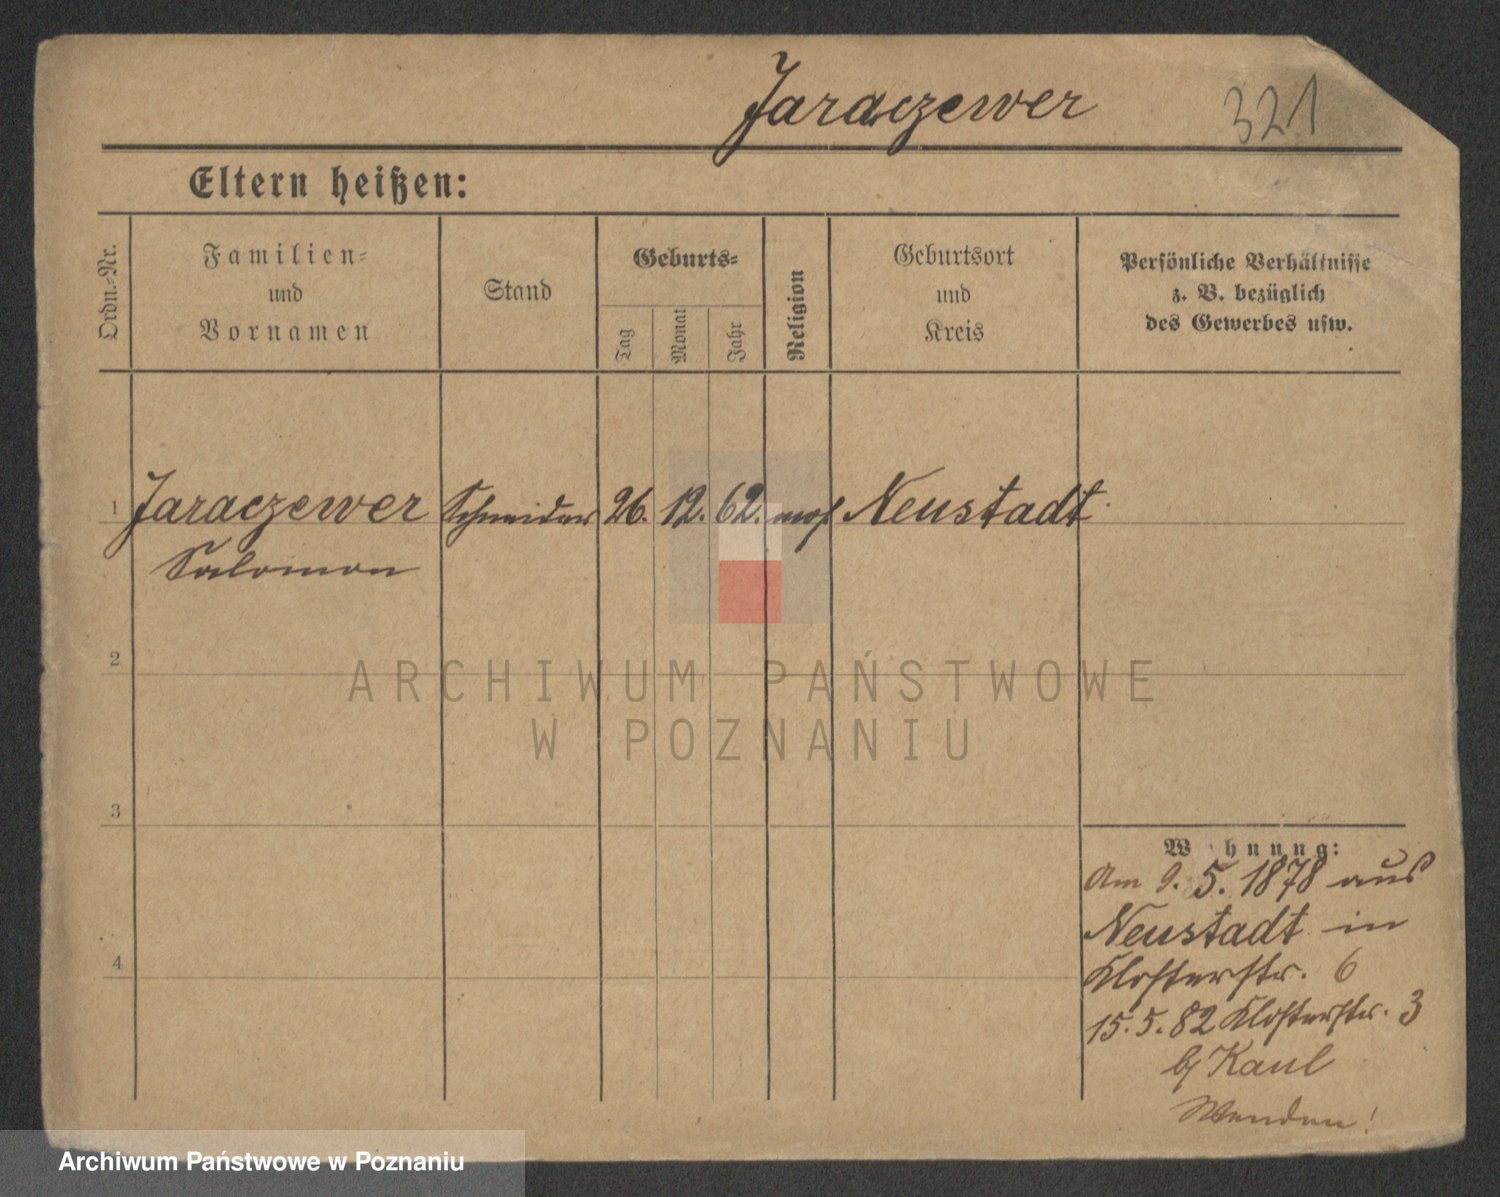 Jaraczewer 321
Eltern heißen:
Ordn.-Nr.
Familien-
und
Vornamen
Stand
Geburts-
Tag
Monat
Jahr
Religion
Geburtsort
und
Kreis
Persönliche Verhältnisse
z. B. bezüglich
des Gewerbes usw.
1 Jaraczewer Schneider 26. 12. 62. mos Neustadt
Salomon
2
3
4
Wohnung:
Am 9. 5. 1878 aus
Neustadt in
Klosterstr. 6
15.5.82 Klosterstr. 3
b/ Kaul
Wenden!
ARCHIWUM PAŃSTWOWE
W POZNANIU
Archiwum Państwowe w Poznaniu